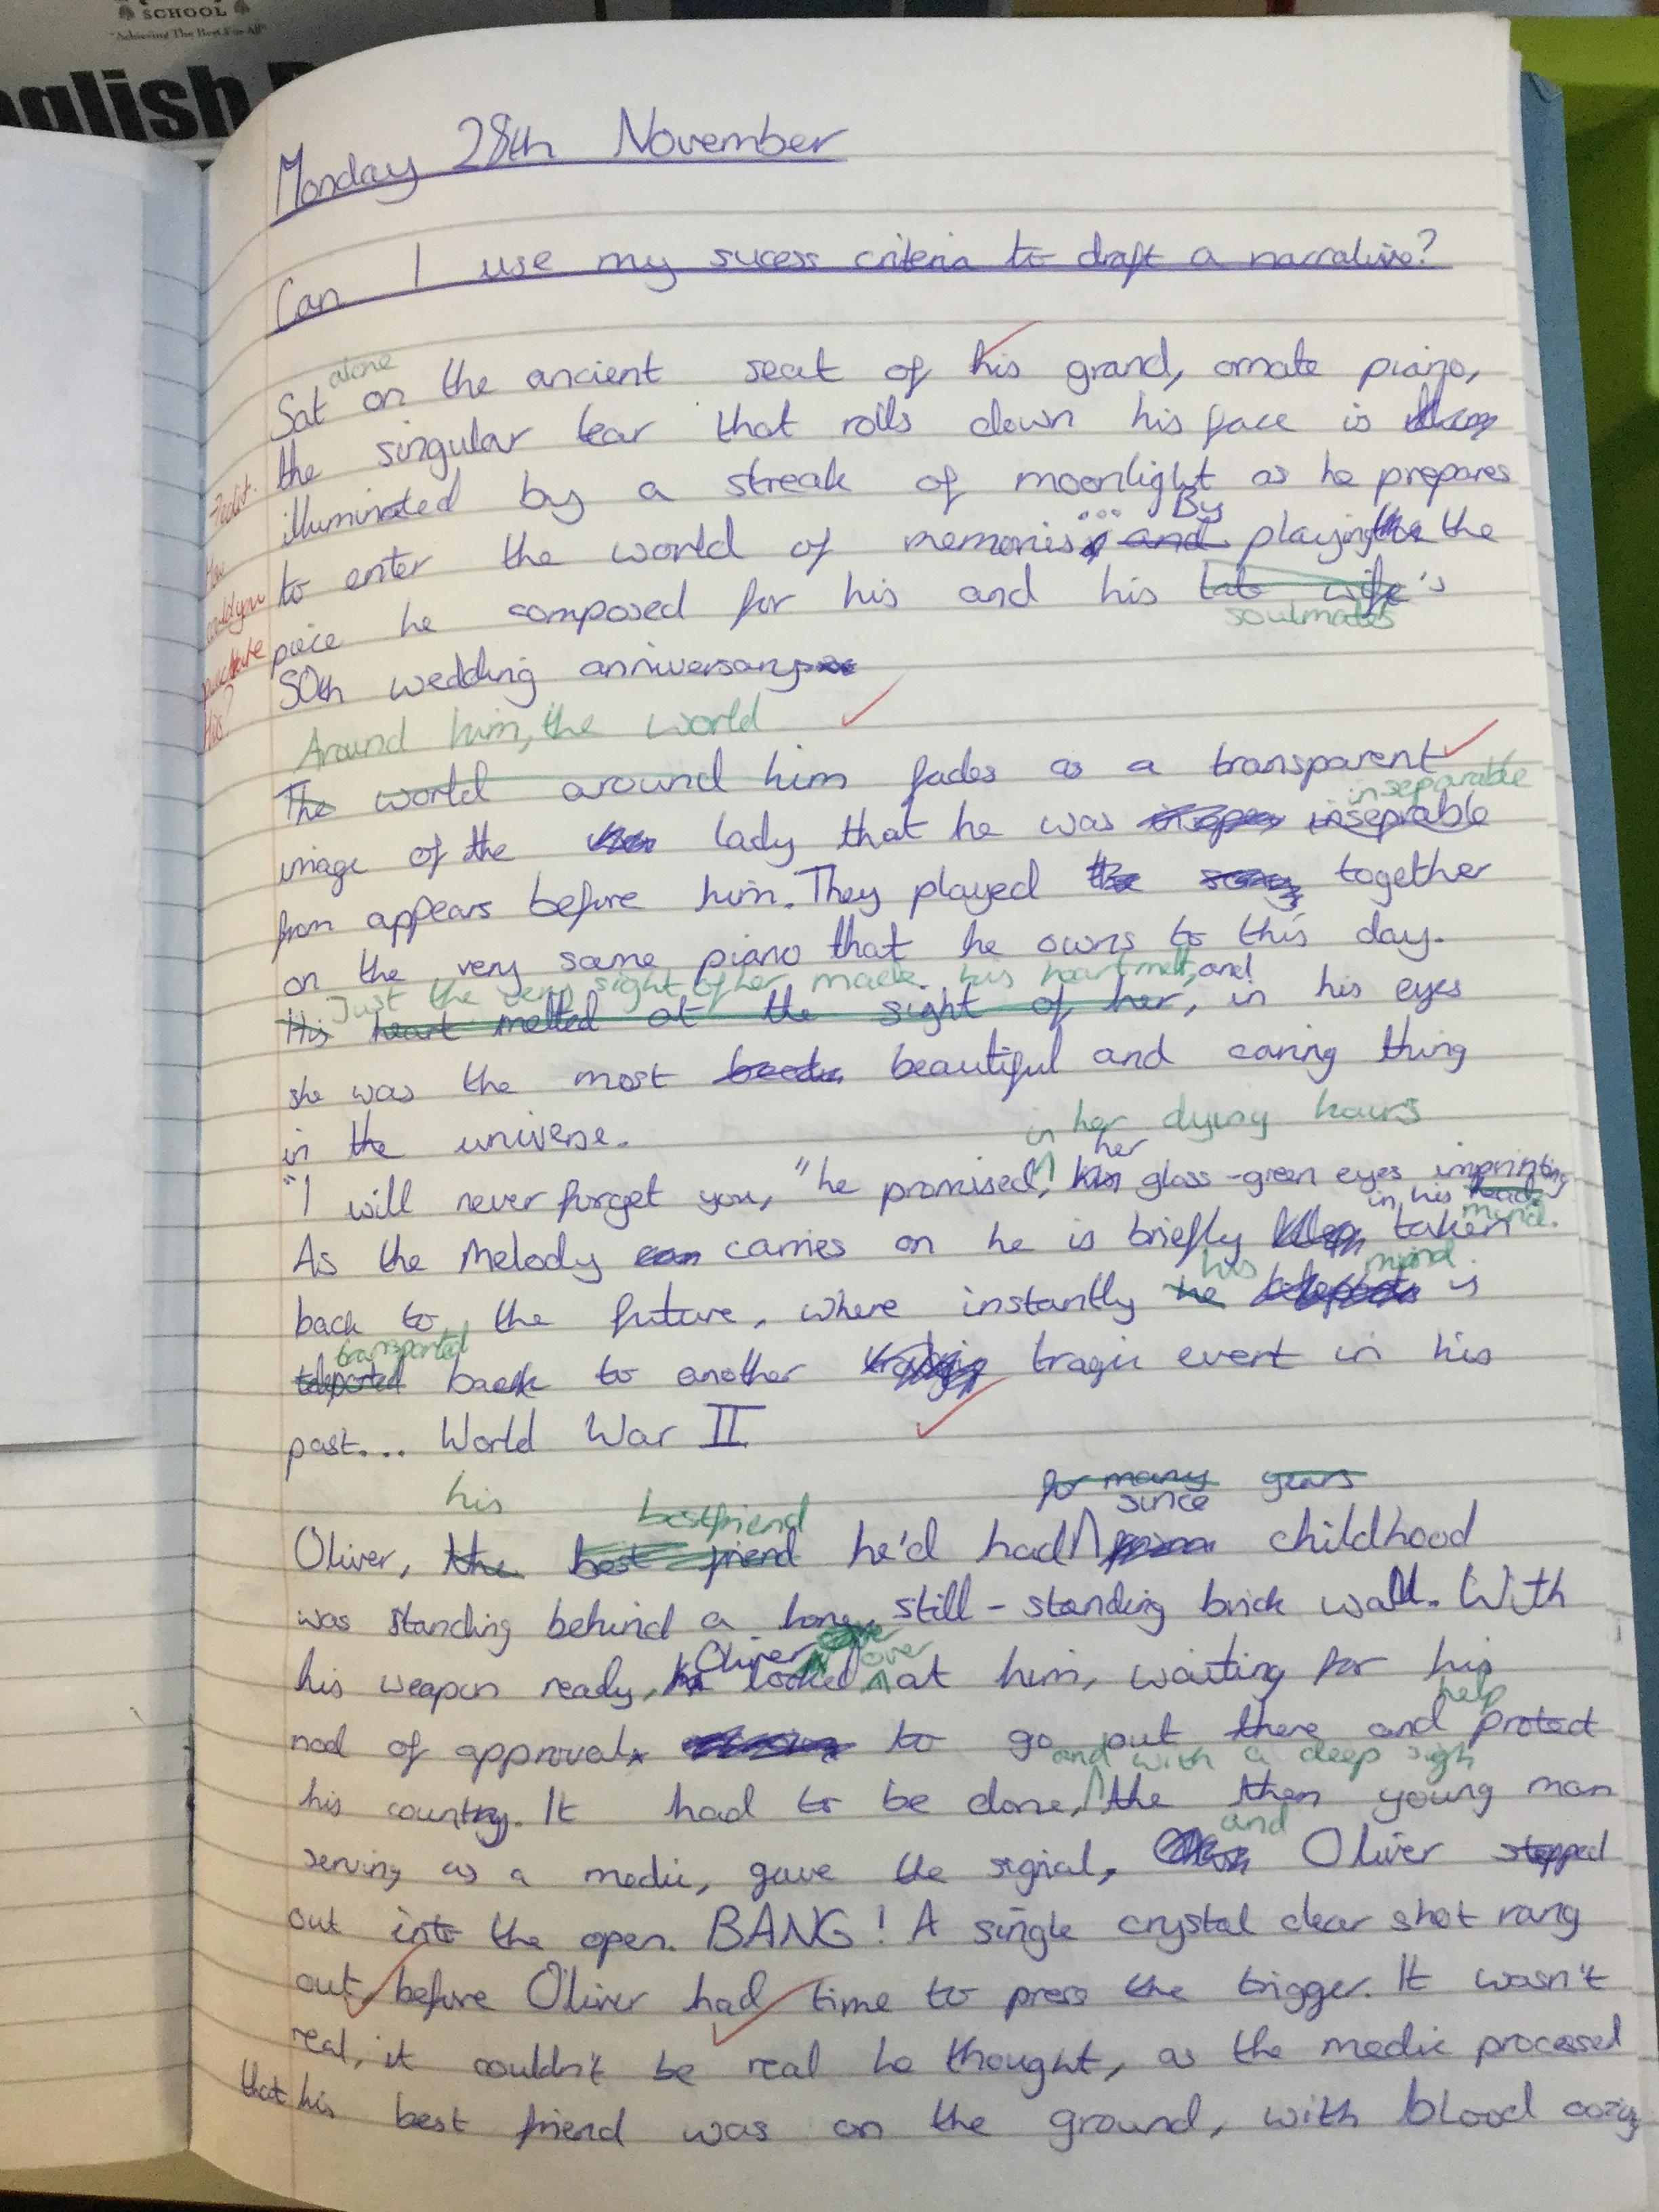 SCHOOL
"Achieving The Best For All"
nglish
Monday 28th November
Can I use my sucess criteria to draft a narrative?
alone
Sat on the ancient seat of his grand, ornate piano,
the singular tear that rolls down his face is
illuminated by a streak of moonlight as he prepares
... By
to enter the world of memoris and playing the
piece he composed for his and his late wife's
soulmates
50th wedding anniversary
Edit.
How
could you
punctuate
this?
Around him, the world
The world around him fades as a transparent
inseparable
image of the lady that he was inseprable
from appears before him. They played together
on the very same piano that he owns to this day.
Just the very sight of her made his heart melt, and
His heart melted at the sight of her, in his eyes
she was the most beautiful and caring thing
in the universe.
in her dying hours
her
"I will never forget you," he promised, glass-green eyes imprinting
in his head
mind.
As the melody carries on he is briefly taken
his mind
back to the future, where instantly he is
transported
teleported back to another tragic event in his
past... World War II
for many years
his bestfriend since
Oliver, the best friend he'd had childhood
was standing behind a still-standing brick wall. With
Oliver over
his weapon ready, he looked at him, waiting for his
help
nod of approval to go out there and protect
and with a deep sigh
his country. It had to be done, the then young man
and
serving as a medic, gave the signal, Oliver stepped
out into the open. BANG! A single crystal clear shot rang
out before Oliver had time to press the trigger. It wasn't
real, it couldn't be real he thought, as the medic processed
that his best friend was on the ground, with blood oozing